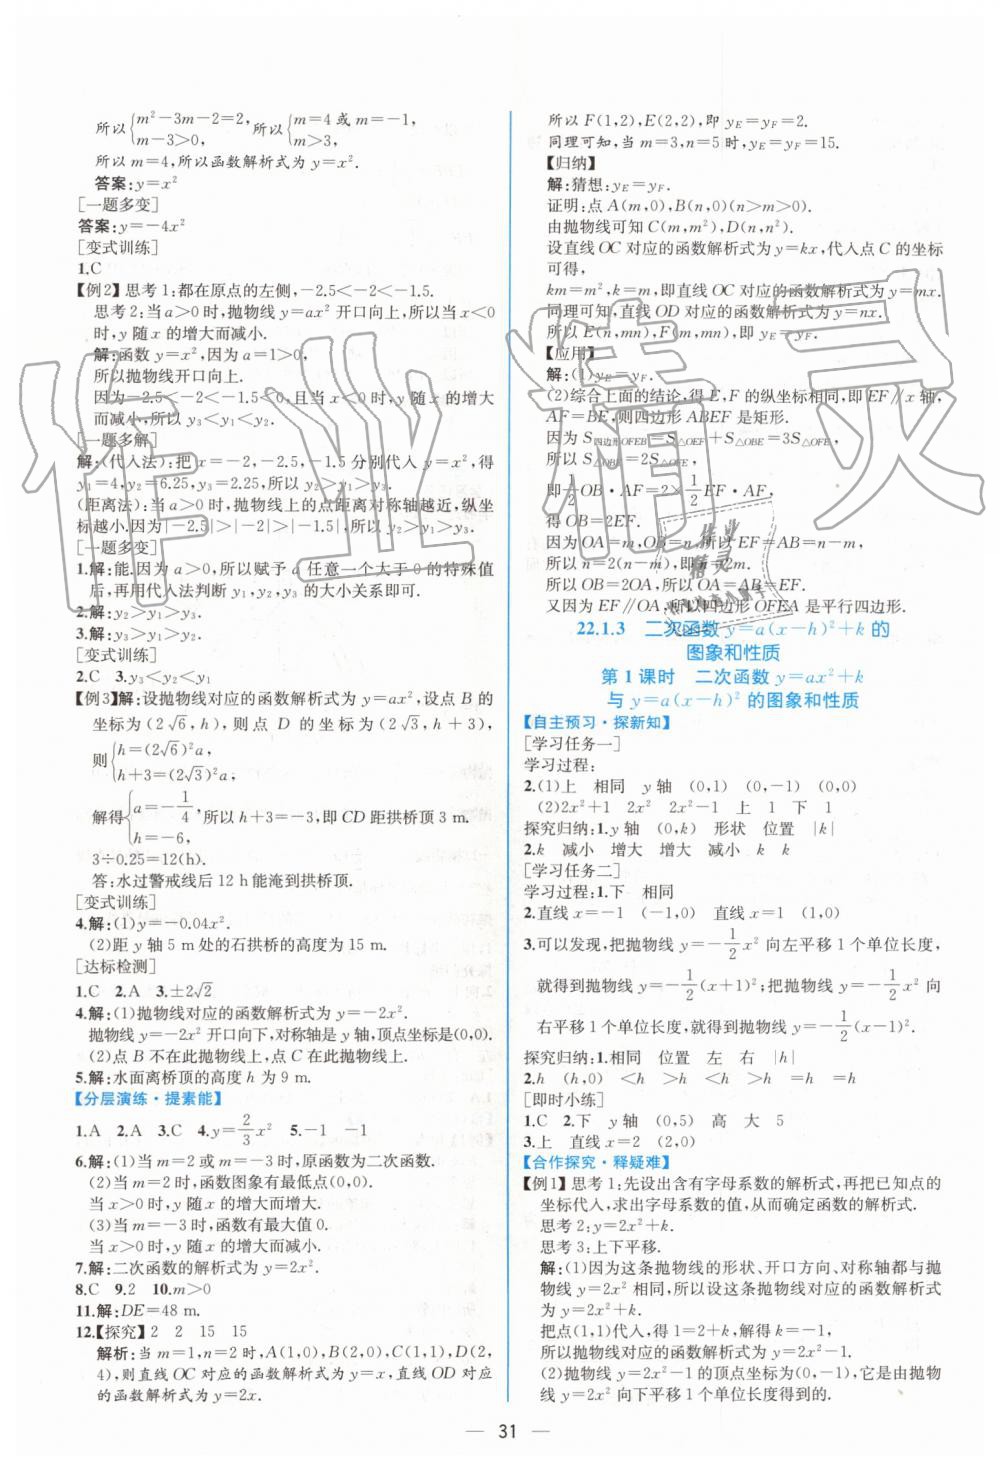 所以{m²-3m-2=2, m-3>0, 所以{m=4或m=-1, m>3,
所以m=4,所以函数解析式为y=x².
答案:y=x²
[一题多变]
答案:y=-4x²
[变式训练]
1.C
【例2】思考1:都在原点的左侧,-2.5<-2<-1.5.
思考2:当a>0时,抛物线y=ax²开口向上,所以当x<0
时,y随x的增大而减小.
解:函数y=x²,因为a=1>0,
所以抛物线开口向上.
因为-2.5<-2<-1.5<0,且当x<0时,y随x的增大
而减小,所以y₃<y₁<y₂.
[一题多解]
解:(代入法):把x=-2,-2.5,-1.5分别代入y=x²,得
y₁=4,y₂=6.25,y₃=2.25,所以y₂>y₁>y₃.
(距离法):当a>0时,抛物线上的点距离对称轴越近,纵坐
标越小.因为|-2.5|>|-2|>|-1.5|,所以y₂>y₁>y₃.
[一题多变]
1.解:能.因为a>0,所以赋予a任意一个大于0的特殊值
后,再用代入法判断y₁,y₂,y₃的大小关系即可.
2.解:y₂>y₁>y₃.
3.解:y₃>y₁>y₂.
[变式训练]
2.C 3.y₃<y₂<y₁
【例3】解:设抛物线对应的函数解析式为y=ax²,设点B的
坐标为(2√6,h),则点D的坐标为(2√3,h+3),
则{h=(2√6)²a, h+3=(2√3)²a,
解得{a=-1/4, h=-6, 所以h+3=-3,即CD距拱桥顶3 m.
3÷0.25=12(h).
答:水过警戒线后12 h能淹到拱桥顶.
[变式训练]
4.解:(1)y=-0.04x².
(2)距y轴5 m处的石拱桥的高度为15 m.
[达标检测]
1.C 2.A 3.±2√2
4.解:(1)抛物线对应的函数解析式为y=-2x².
抛物线y=-2x²开口向下,对称轴是y轴,顶点坐标是(0,0).
(2)点B不在此抛物线上,点C在此抛物线上.
5.解:水面离桥顶的高度h为9 m.
【分层演练·提素能】
1.A 2.A 3.C 4.y=2/3x² 5.-1 -1
6.解:(1)当m=2或m=-3时,原函数为二次函数.
(2)当m=2时,函数图象有最低点(0,0).
当x>0时,y随x的增大而增大.
(3)当m=-3时,函数有最大值0.
当x>0时,y随x的增大而减小.
7.解:二次函数的解析式为y=2x².
8.C 9.2 10.m>0
11.解:DE=48 m.
12.【探究】2 2 15 15
解析:当m=1,n=2时,A(1,0),B(2,0),C(1,1),D(2,
4),则直线OC对应的函数解析式为y=x,直线OD对应
的函数解析式为y=2x.
所以F(1,2),E(2,2),即yE=yF=2.
同理可知,当m=3,n=5时,yE=yF=15.
【归纳】
解:猜想:yE=yF.
证明:点A(m,0),B(n,0)(n>m>0).
由抛物线可知C(m,m²),D(n,n²).
设直线OC对应的函数解析式为y=kx,代入点C的坐标
可得,
km=m²,k=m,即直线OC对应的函数解析式为y=mx.
同理可知,直线OD对应的函数解析式为y=nx.
所以E(n,mn),F(m,mn),即yE=yF.
【应用】
解:(1)yE=yF.
(2)综合上面的结论,得E,F的纵坐标相同,即EF∥x轴,
AF=BE,则四边形ABEF是矩形.
因为S四边形OFEB=S△OEF+S△OBE=3S△OFE,
所以S△OBE=2S△OEF,
即1/2OB·AF=2×1/2EF·AF,
得OB=2EF.
因为OA=m,OB=n,所以EF=AB=n-m,
所以n=2(n-m),即n=2m.
所以OB=2OA,所以EF=AB=OA.
又因为EF∥OA,所以四边形OFEA是平行四边形.
22.1.3 二次函数y=a(x-h)²+k的
图象和性质
第1课时 二次函数y=ax²+k
与y=a(x-h)²的图象和性质
【自主预习·探新知】
[学习任务一]
学习过程:
2.(1)上 相同 y轴 (0,1) (0,-1) (0,0)
(2)2x²+1 2x² 2x²-1 上 1 下 1
探究归纳:1.y轴 (0,k) 形状 位置 |k|
2.k 减小 增大 增大 减小 k k
[学习任务二]
学习过程:1.下 相同
2.直线x=-1 (-1,0) 直线x=1 (1,0)
3.可以发现,把抛物线y=-1/2x²向左平移1个单位长度,
就得到抛物线y=-1/2(x+1)²;把抛物线y=-1/2x²向
右平移1个单位长度,就得到抛物线y=-1/2(x-1)².
探究归纳:1.相同 位置 左 右 |h|
2.h (h,0) <h >h >h <h
[即时小练]
1.C 2.下 y轴 (0,5) 高 大 5
3.上 直线x=2 (2,0)
【合作探究·释疑难】
【例1】思考1:先设出含有字母系数的解析式,再把已知点的
坐标代入,求出字母系数的值,从而确定函数的解析式.
思考2:y=2x²+k.
思考3:上下平移.
解:(1)因为这条抛物线的形状、开口方向、对称轴都与抛
物线y=2x²相同,所以设这条抛物线对应的函数解析式
为y=2x²+k.
把点(1,1)代入,得1=2+k,解得k=-1.
所以抛物线对应的函数解析式为y=2x²-1.
(2)抛物线y=2x²-1的顶点坐标为(0,-1),它是由抛物
线y=2x²向下平移1个单位长度得到的.
31
作业精灵